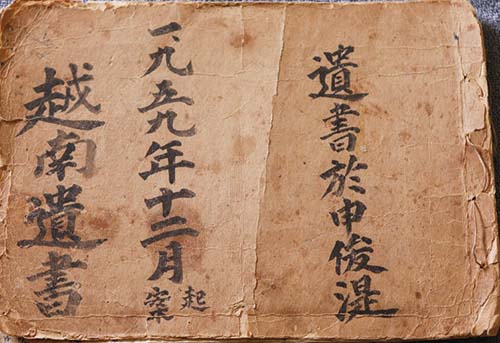 遺書於申俊湜
一、九五九年十二月
起案
越南遺書